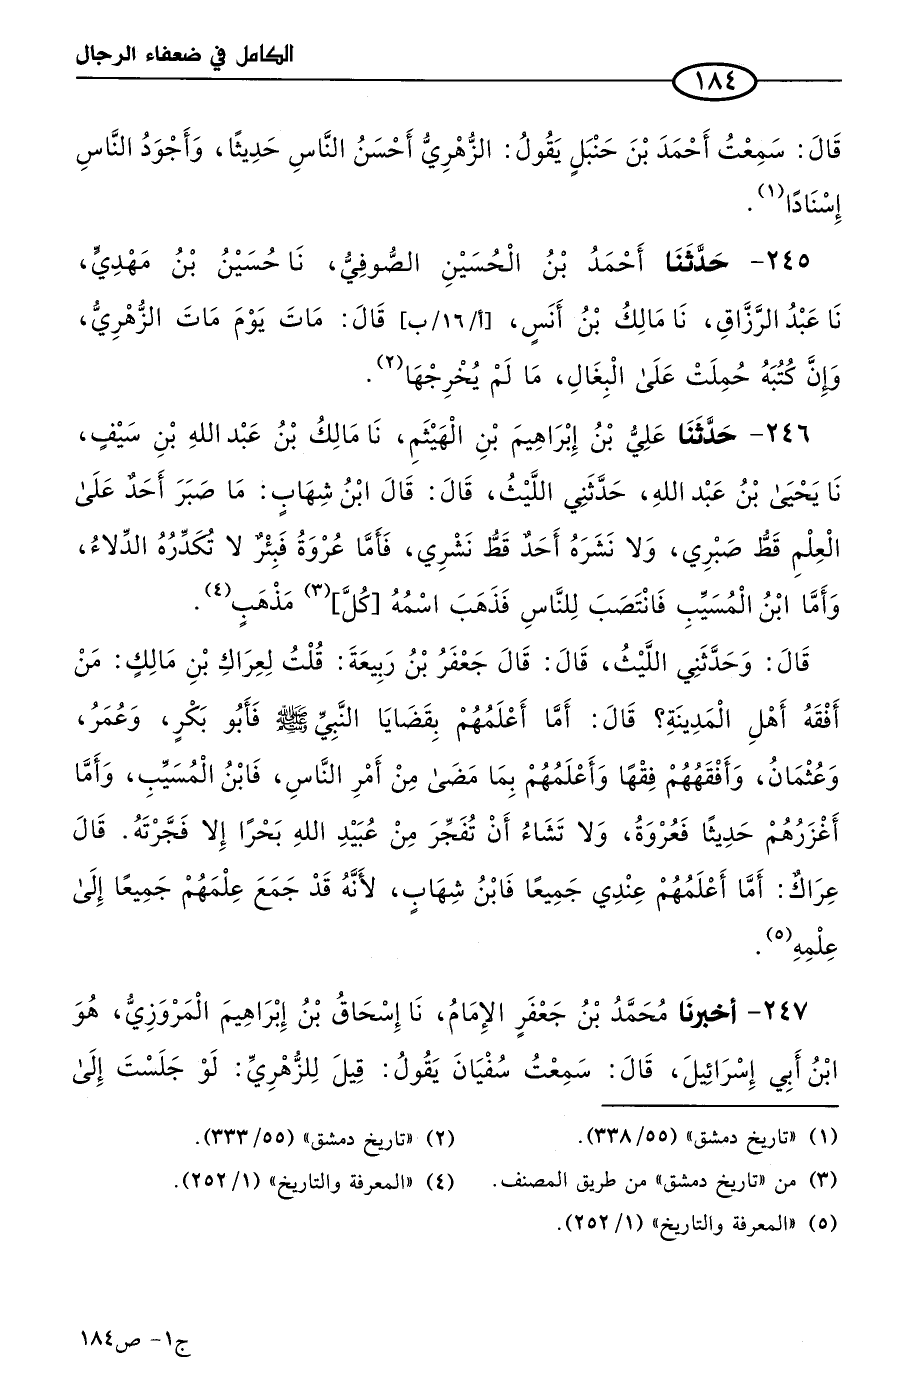 الكامل في ضعفاء الرجال
١٨٤
قَالَ: سَمِعْتُ أَحْمَدَ بْنَ حَنْبَلٍ يَقُولُ: الزُّهْرِيُّ أَحْسَنُ النَّاسِ حَدِيثًا، وَأَجْوَدُ النَّاسِ
إِسْنَادًا(١).
٢٤٥- حَدَّثَنَا أَحْمَدُ بْنُ الْحُسَيْنِ الصُّوفِيُّ، نَا حُسَيْنُ بْنُ مَهْدِيٍّ،
نَا عَبْدُ الرَّزَّاقِ، نَا مَالِكُ بْنُ أَنَسٍ، [أ/١٦/ب] قَالَ: مَاتَ يَوْمَ مَاتَ الزُّهْرِيُّ،
وَإِنَّ كُتُبَهُ حُمِلَتْ عَلَىٰ الْبِغَالِ، مَا لَمْ يُخْرِجْهَا(٢).
٢٤٦- حَدَّثَنَا عَلِيُّ بْنُ إِبْرَاهِيمَ بْنِ الْهَيْثَمِ، نَا مَالِكُ بْنُ عَبْدِ اللهِ بْنِ سَيْفٍ،
نَا يَحْيَىٰ بْنُ عَبْدِ اللهِ، حَدَّثَنِي اللَّيْثُ، قَالَ: قَالَ ابْنُ شِهَابٍ: مَا صَبَرَ أَحَدٌ عَلَىٰ
الْعِلْمِ قَطُّ صَبْرِي، وَلا نَشَرَهُ أَحَدٌ قَطُّ نَشْرِي، فَأَمَّا عُرْوَةُ فَبِئْرٌ لا تُكَدِّرُهُ الدِّلاءُ،
وَأَمَّا ابْنُ الْمُسَيِّبِ فَانْتَصَبَ لِلنَّاسِ فَذَهَبَ اسْمُهُ [كُلَّ](٣) مَذْهَبٍ(٤).
قَالَ: وَحَدَّثَنِي اللَّيْثُ، قَالَ: قَالَ جَعْفَرُ بْنُ رَبِيعَةَ: قُلْتُ لِعِرَاكِ بْنِ مَالِكٍ: مَنْ
أَفْقَهُ أَهْلِ الْمَدِينَةِ؟ قَالَ: أَمَّا أَعْلَمُهُمْ بِقَضَايَا النَّبِيِّ ﷺ فَأَبُو بَكْرٍ، وَعُمَرُ،
وَعُثْمَانُ، وَأَفْقَهُهُمْ فِقْهًا وَأَعْلَمُهُمْ بِمَا مَضَىٰ مِنْ أَمْرِ النَّاسِ، فَابْنُ الْمُسَيِّبِ، وَأَمَّا
أَغْزَرُهُمْ حَدِيثًا فَعُرْوَةُ، وَلا تَشَاءُ أَنْ تُفَجِّرَ مِنْ عُبَيْدِ اللهِ بَحْرًا إِلا فَجَّرْتَهُ. قَالَ
عِرَاكٌ: أَمَّا أَعْلَمُهُمْ عِنْدِي جَمِيعًا فَابْنُ شِهَابٍ، لأَنَّهُ قَدْ جَمَعَ عِلْمَهُمْ جَمِيعًا إِلَىٰ
عِلْمِهِ(٥).
٢٤٧- أخبرنَا مُحَمَّدُ بْنُ جَعْفَرٍ الإِمَامُ، نَا إِسْحَاقُ بْنُ إِبْرَاهِيمَ الْمَرْوَزِيُّ، هُوَ
ابْنُ أَبِي إِسْرَائِيلَ، قَالَ: سَمِعْتُ سُفْيَانَ يَقُولُ: قِيلَ لِلزُّهْرِيِّ: لَوْ جَلَسْتَ إِلَىٰ
(١) «تاريخ دمشق» (٥٥/ ٣٣٨). (٢) «تاريخ دمشق» (٥٥/ ٣٣٣).
(٣) من «تاريخ دمشق» من طريق المصنف. (٤) «المعرفة والتاريخ» (١/ ٢٥٢).
(٥) «المعرفة والتاريخ» (١/ ٢٥٢).
ج١- ص١٨٤